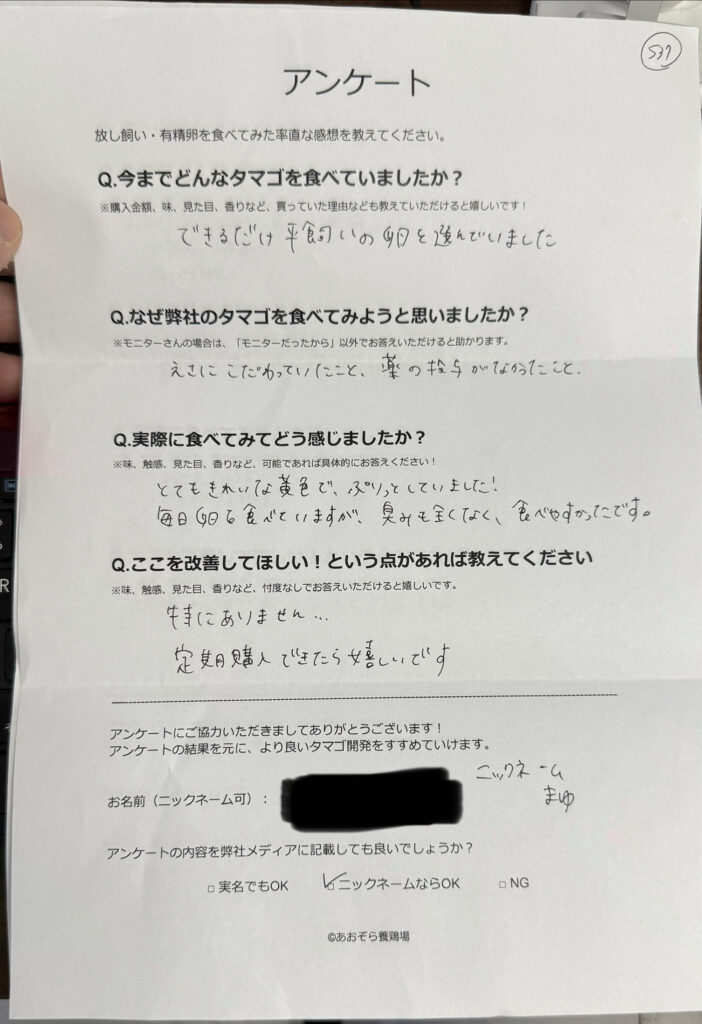 537
アンケート
放し飼い・有精卵を食べてみた率直な感想を教えてください。
Q.今までどんなタマゴを食べていましたか？
※購入金額、味、見た目、香りなど、買っていた理由なども教えていただけると嬉しいです！
できるだけ平飼いの卵を選んでいました
Q.なぜ弊社のタマゴを食べてみようと思いましたか？
※モニターさんの場合は、「モニターだったから」以外でお答えいただけると助かります。
えさにこだわっていたこと、薬の投与がなかったこと.
Q.実際に食べてみてどう感じましたか？
※味、触感、見た目、香りなど、可能であれば具体的にお答えください！
とてもきれいな黄色で、ぷりっとしていました！
毎日卵を食べていますが、臭みも全くなく、食べやすかったです。
Q.ここを改善してほしい！という点があれば教えてください
※味、触感、見た目、香りなど、忖度なしでお答えいただけると嬉しいです。
特にありません…
定期購入できたら嬉しいです
アンケートにご協力いただきましてありがとうございます！
アンケートの結果を元に、より良いタマゴ開発をすすめていけます。
お名前（ニックネーム可）：
ニックネーム
まゆ
アンケートの内容を弊社メディアに記載しても良いでしょうか？
□ 実名でもOK ☑ ニックネームならOK □ NG
©あおぞら養鶏場